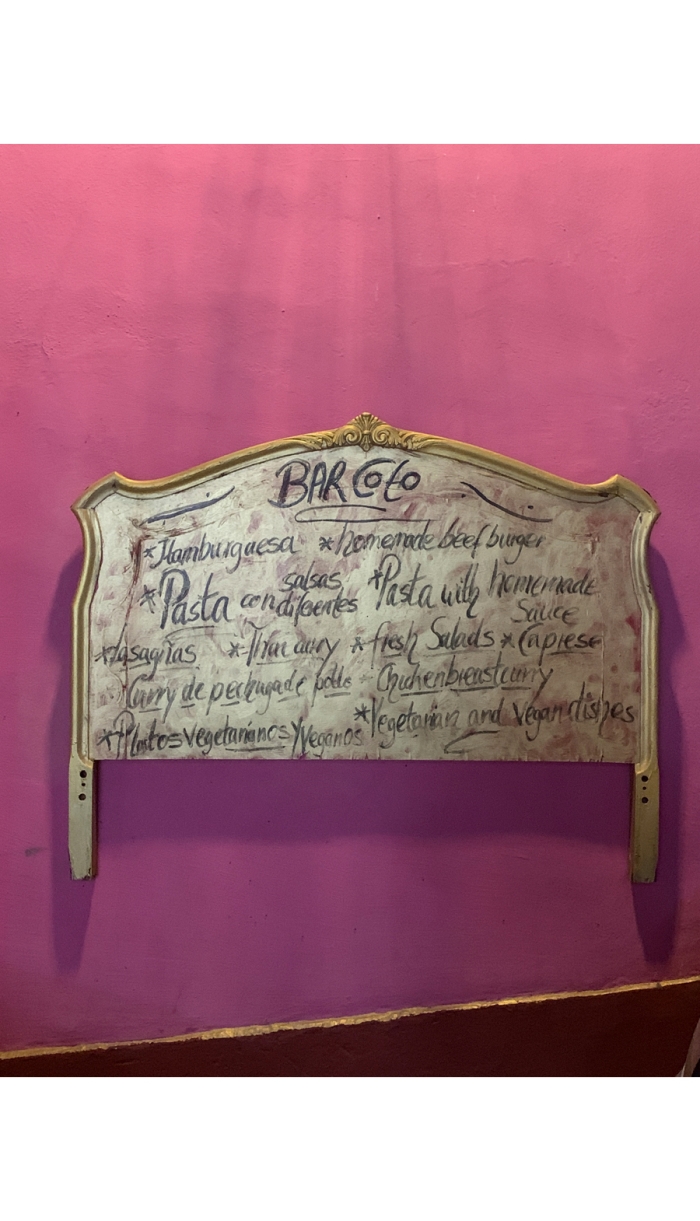 BAR COCO
*Hamburgaesa *homemade beef burger
*Pasta con salsas diferentes *Pasta with homemade Sauce
*lasagnas *Thai curry *fresh Salads *Caprese
Curry de pechuga de pollo - Chickenbreastcurry
*Platos vegetarianos y veganos *Vegetarian and vegan dishes